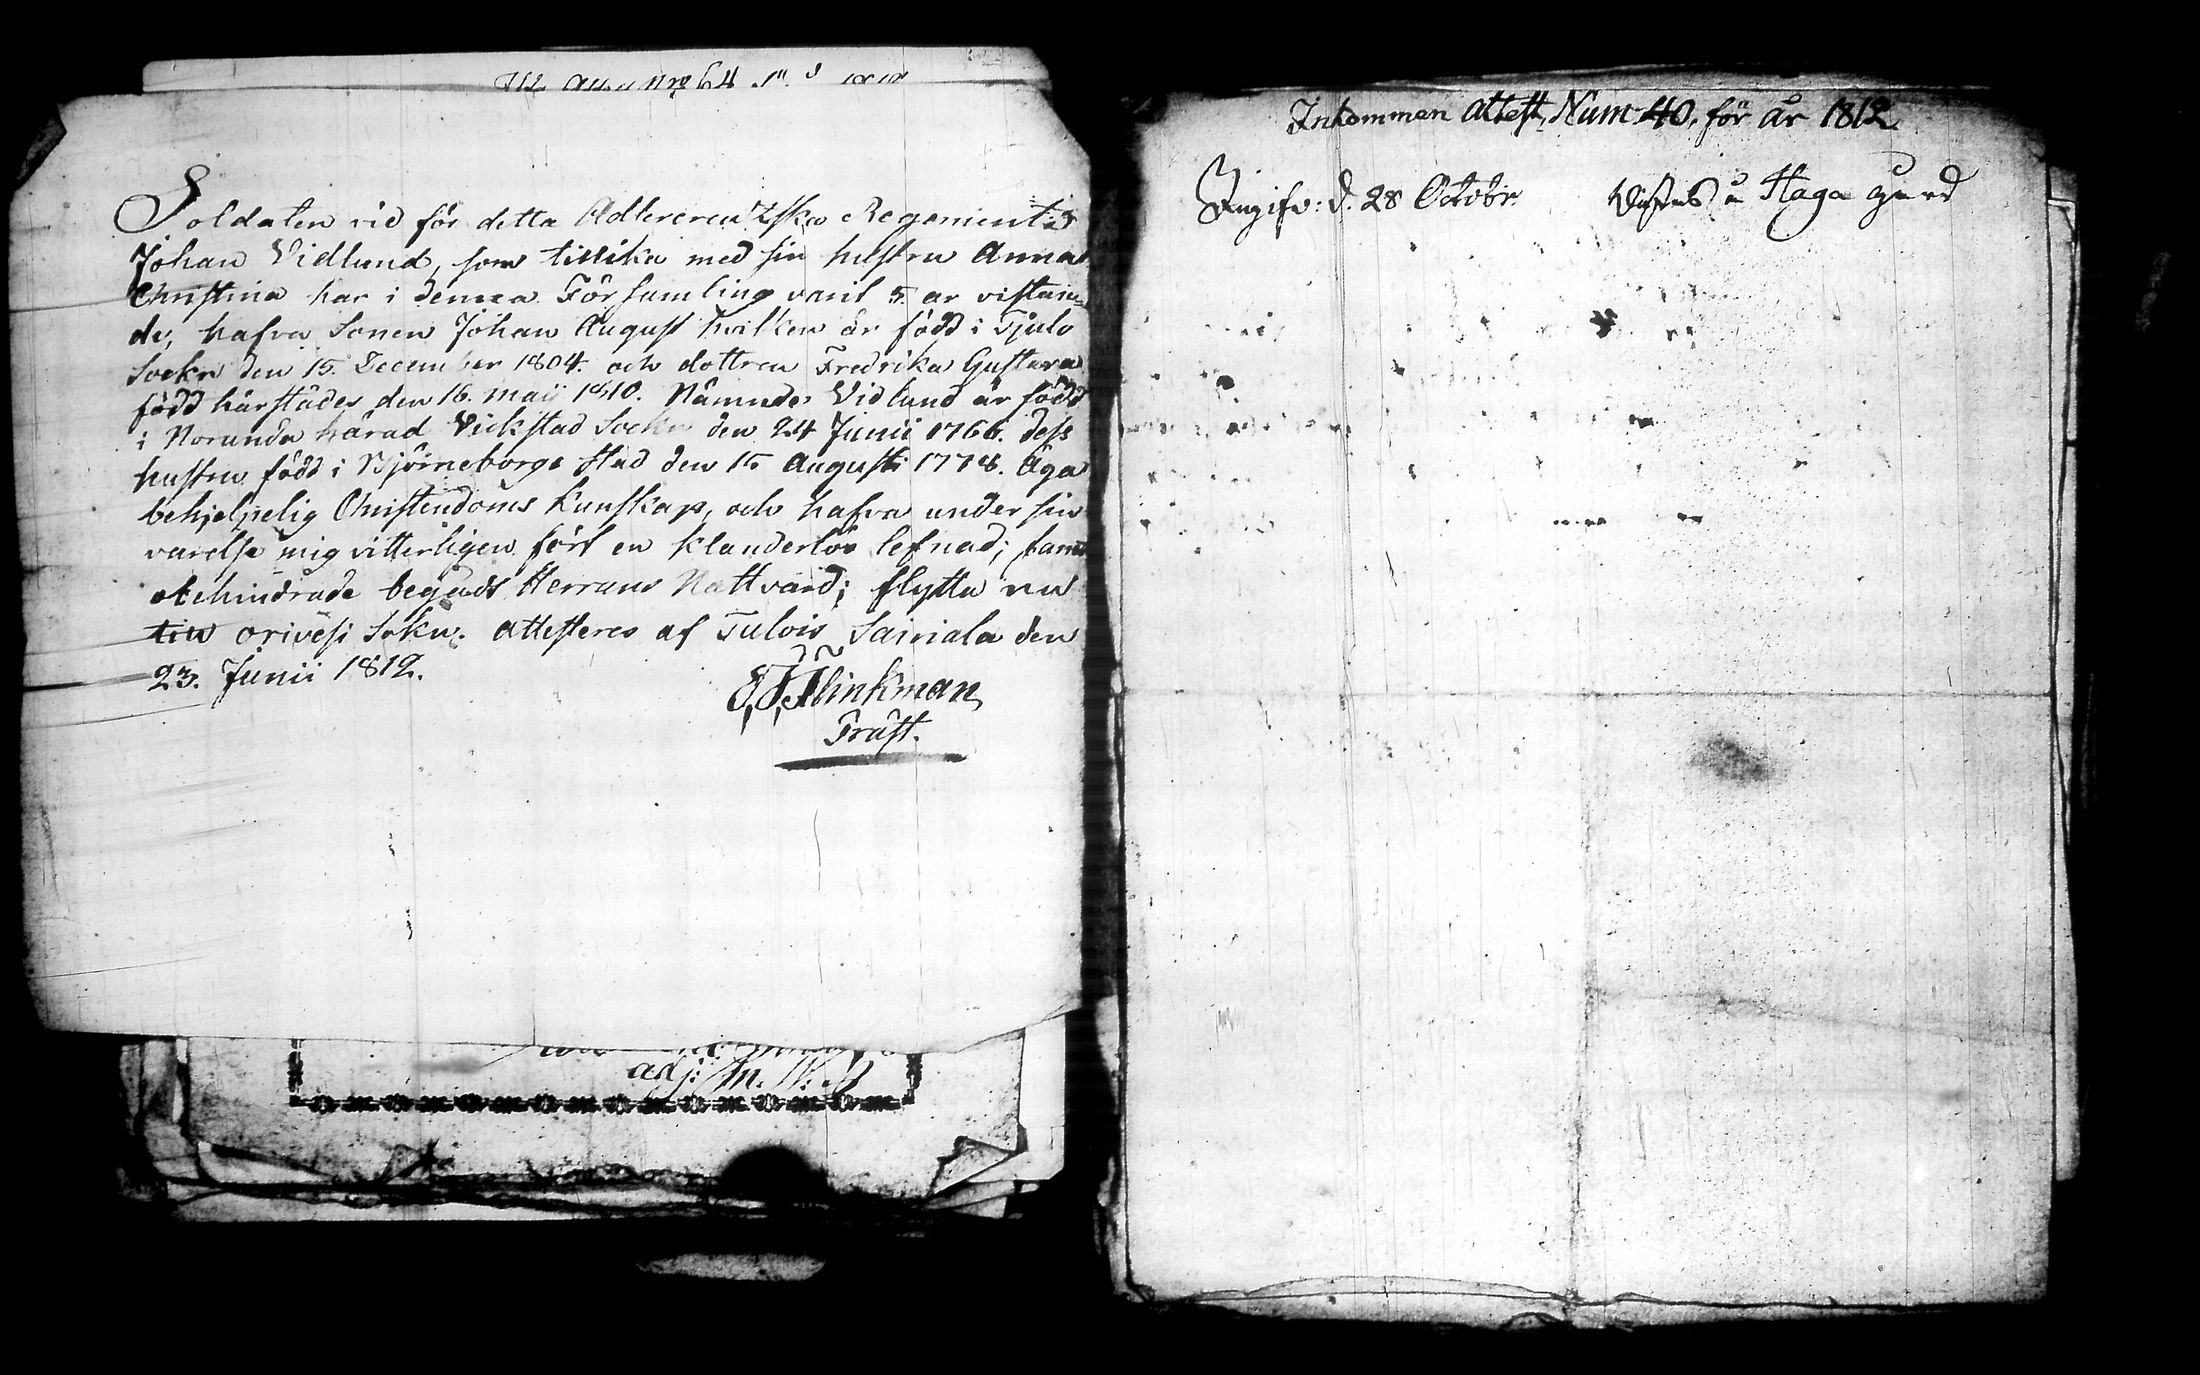 Soldaten vid för detta Adlercreutzska Regementet
Johan Vidlund, som tillika med sin hustru Anna
Christina har i denna Församling varit 5. år vistan=
de, hafva Sonen Johan August hvilken är född i
Sockn den 15. December 1804. och dottren Fredrika Gustava
född härstädes den 16. maii 1810. Nämnde Vidlund är född
i Norunda härad Vickstad Sockn den 24 Junii 1766. dess
hustru född i Björneborgs stad den 15 Augusti 1778. Äga
behjelpelig Christendoms kunskap, och hafva under sin
varelse mig vitterligen fört en klanderlös lefnad; samt
obehindrade begådt Herrans Nattvard; flytta nu
till orivesi Sokn. attesteres af Tulois Sairiala den
23. Junii 1812.
Flinkman
Prost.
adj:
Inkommen attest, Num 40, för år 1812
Angifv: d. 28 Octobr vistas å Haga gård